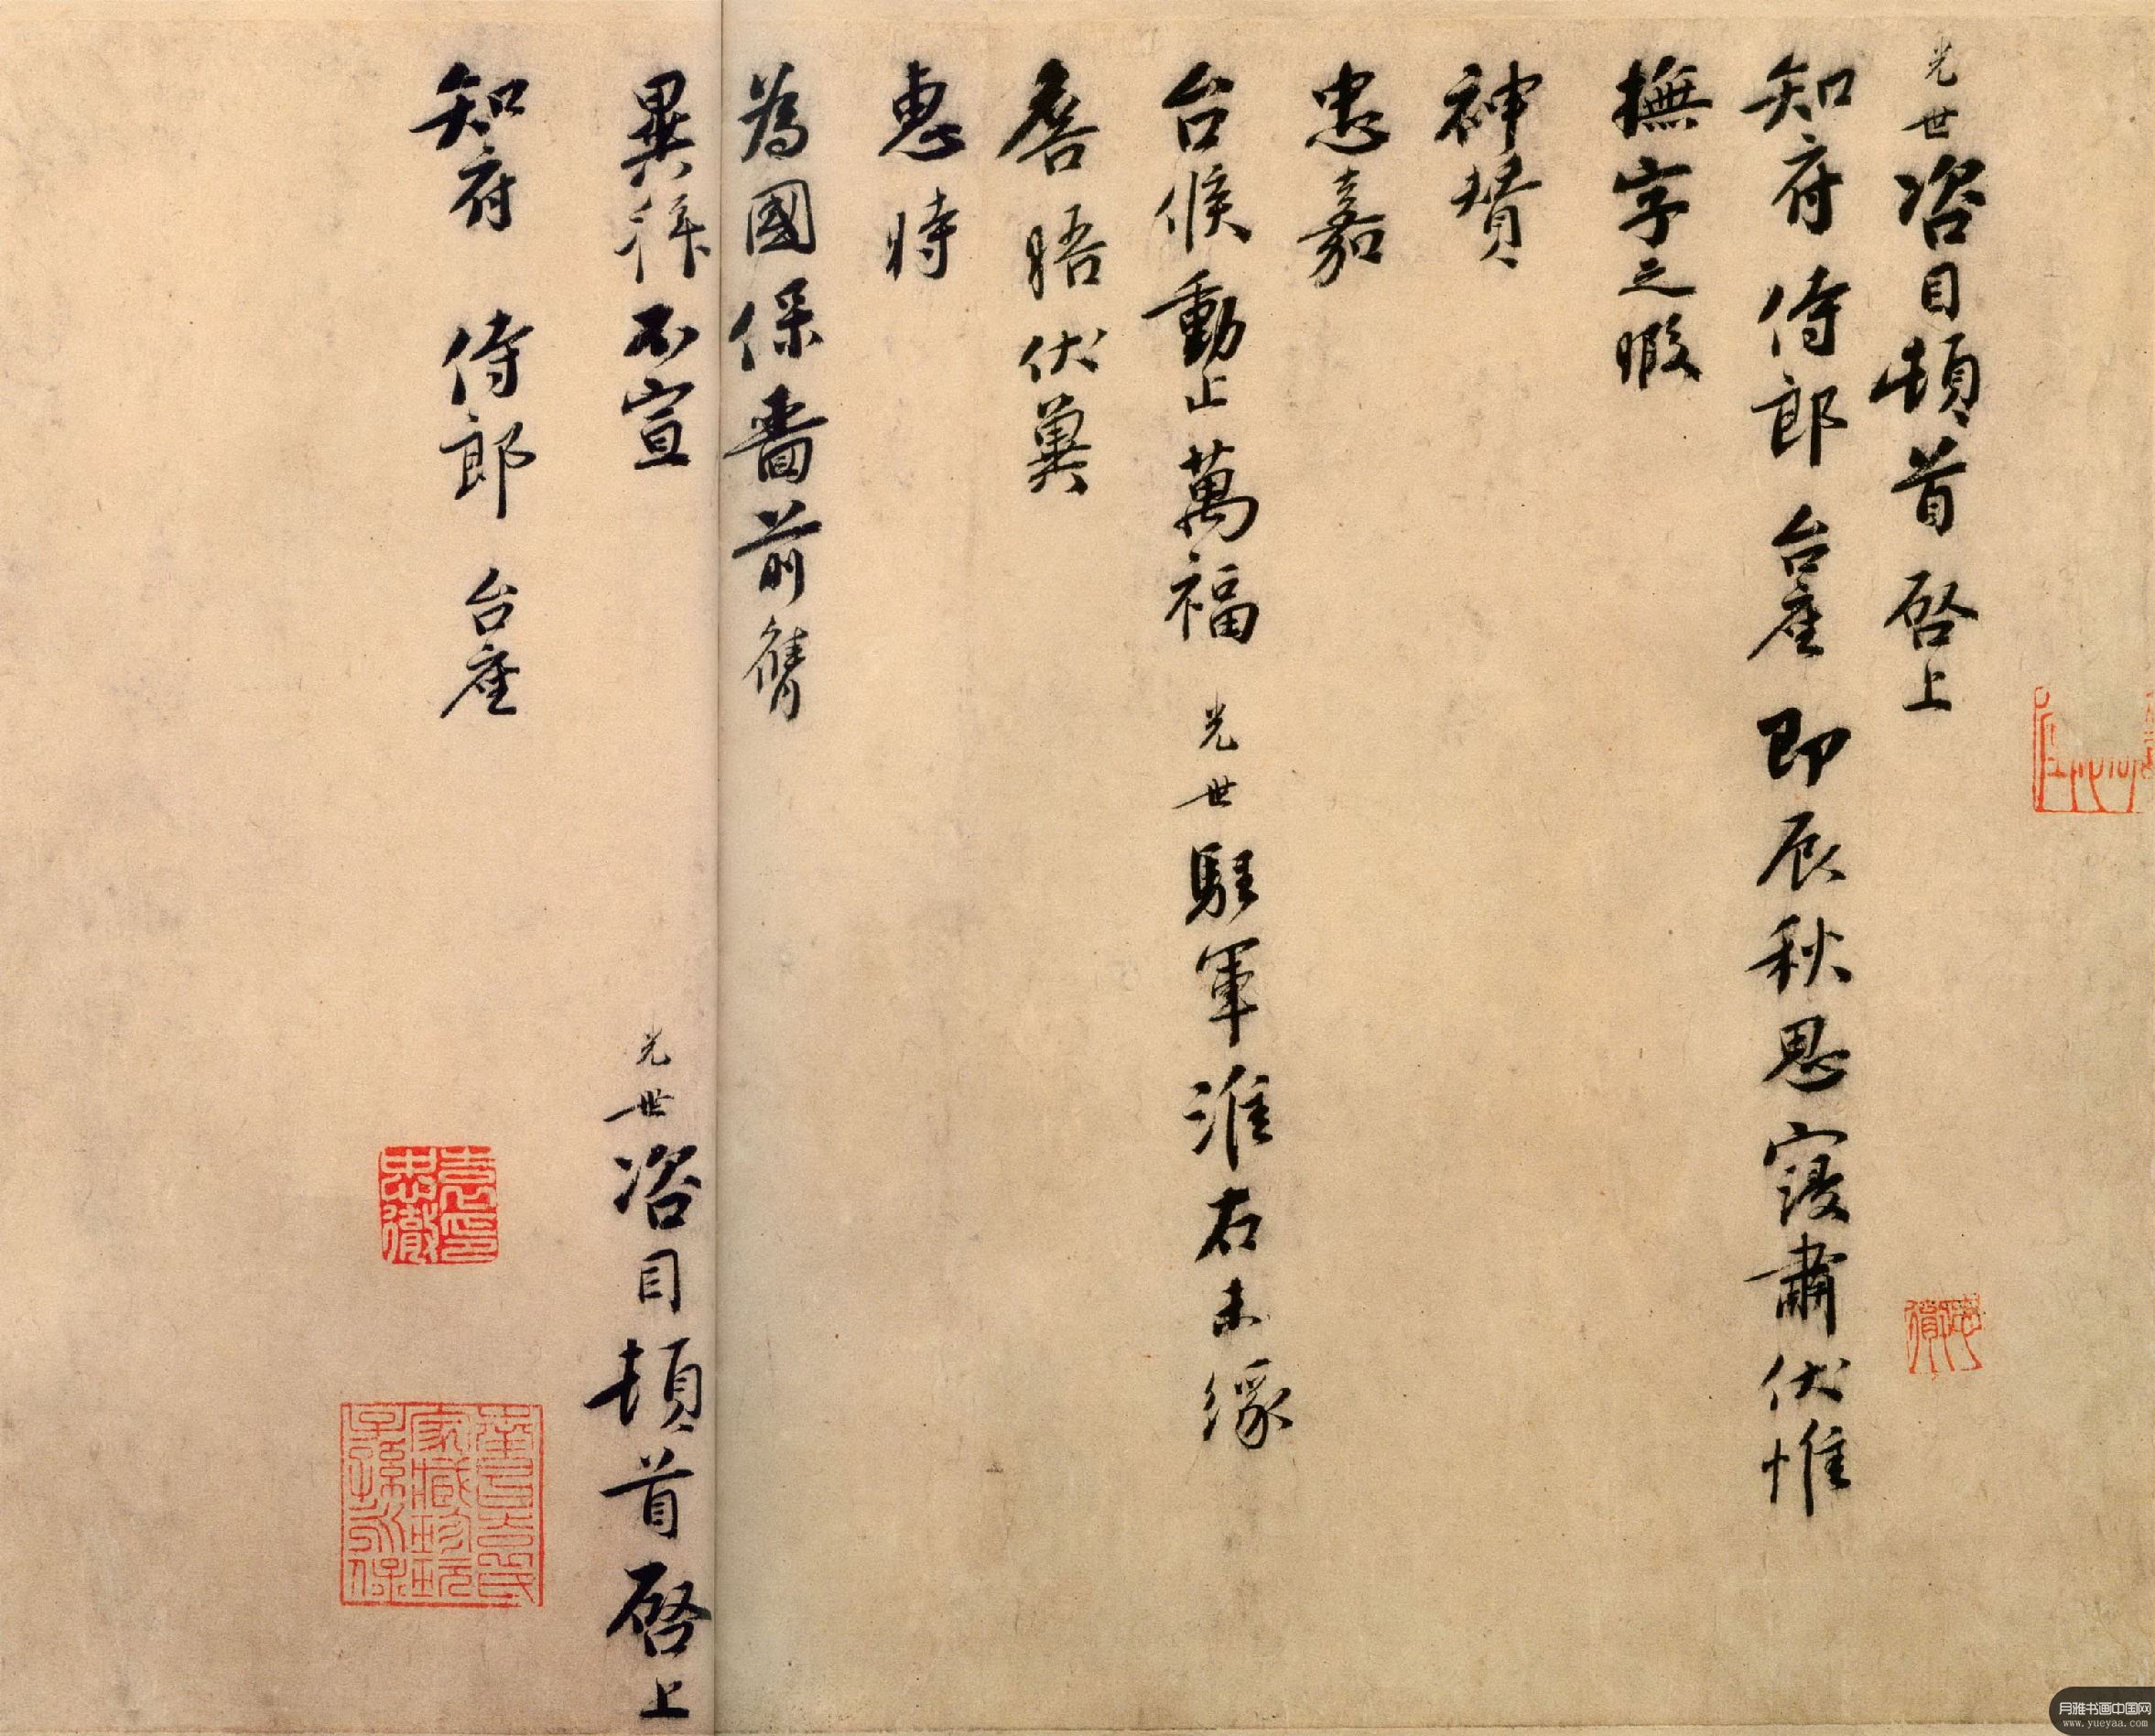 光世咨目頓首啓上
知府侍郎台座即辰秋思寖肅伏惟
撫字之暇
神賛
忠嘉
台候動止萬福光世駐軍淮右未緣
詹晤伏冀
惠時
為國保嗇前膺
異拜不宣光世咨目頓首啓上
知府侍郎台座
袁氏忠徹
家藏珍玩
子孫永保
月雅书画中国网
www.yueyaa.com